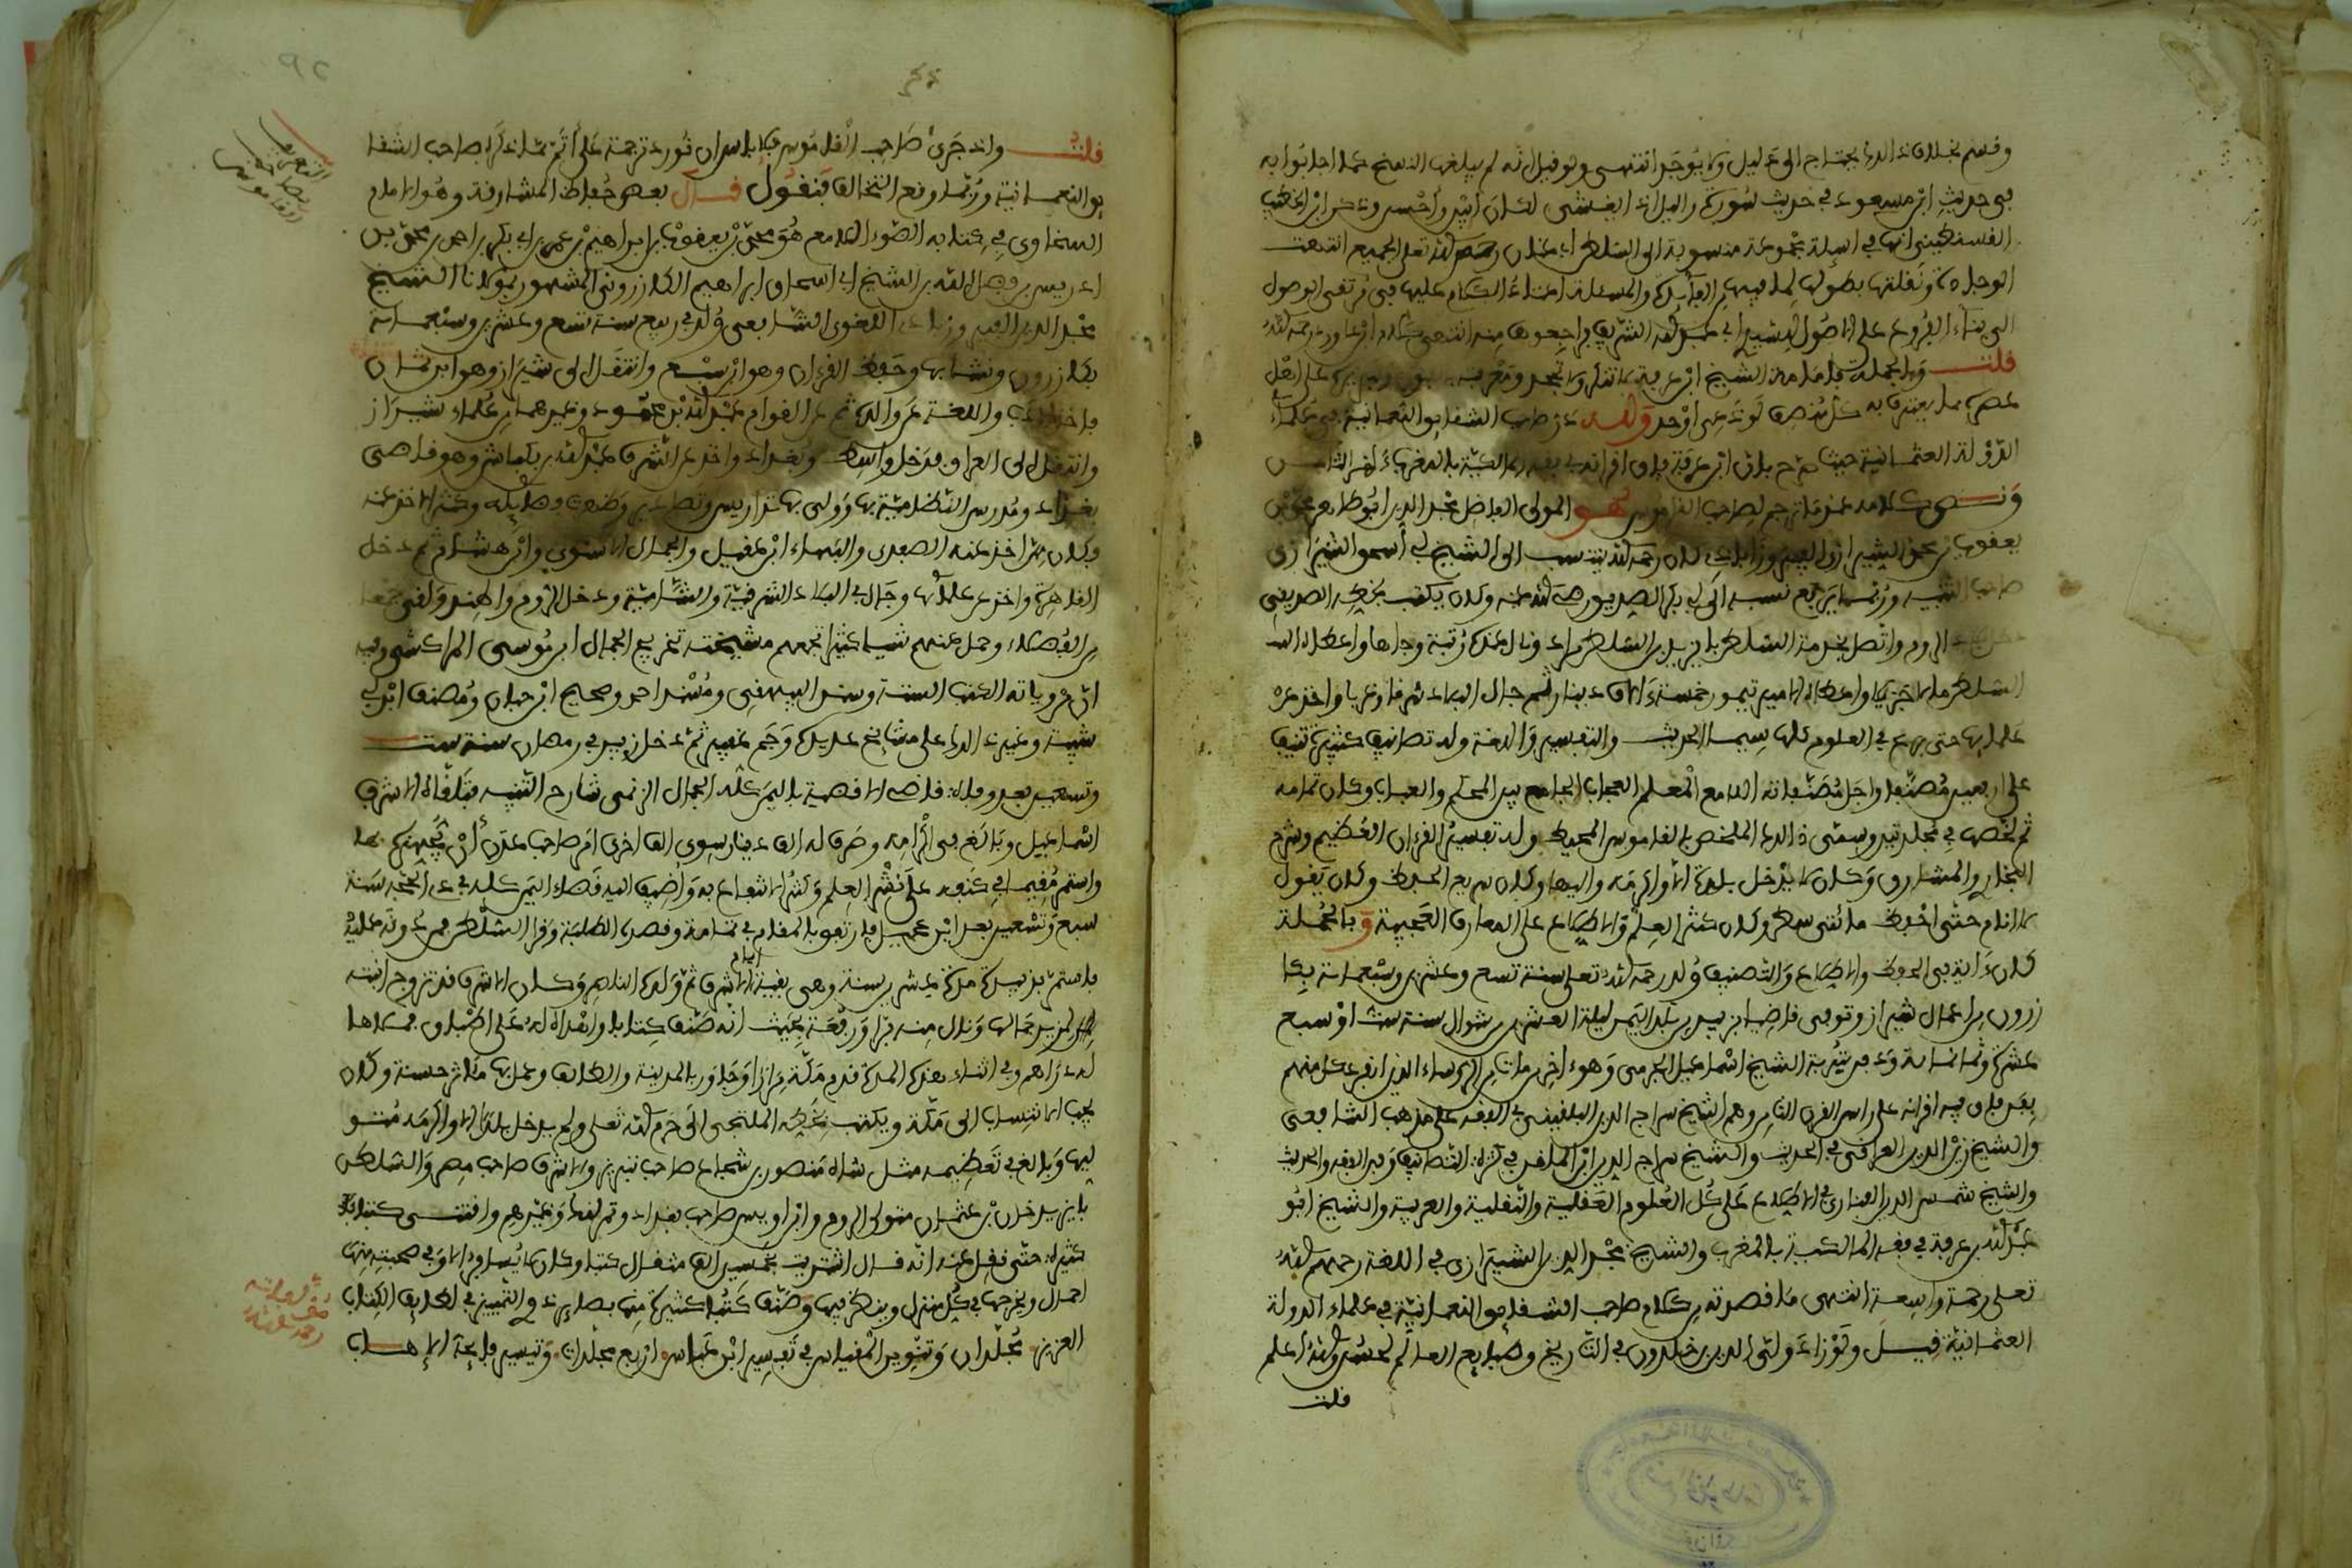 وقسم بخلاف ذلك يحتاج الى دليل ولا يوجد انتهى ولو قيل انه لم يبلغهم النسخ كما اجابوا به
في حديث ابن مسعود في حديث سورة والليل اذا يغشى لكان أبين وأحسن وذكر ابن الخطيب
القسنطيني انها في اسئلة مجموعة منسوبة الى السلطان ابي عنان رحم الله تعلى الجميع انتهت
الوجادة ونقلتها بطولها لما فيها من الفائدة والمسئلة
الى بناء الفروع على الاصول للشيخ ابي عبد الله الشريف فراجعوها منه انتهى كلام رحمه الله
قلت وبالجملة فإمامة الشيخ ابن عرفة لا تنكر ولا تجحد ومعرفته على اهل
عصره مما يعترف به كل منصف وقد ذكر صاحب الشقايق النعمانية في علماء
الدولة العثمانية حيث صرح بان ابن عرفة فاق اقرانه في فقه المالكية بالمغرب
ونص كلامه عند ما ترجم لصاحب القاموس هو المولى الفاضل مجد الدين ابو طاهر محمد بن
يعقوب بن محمد الشيرازي الفيروزابادي كان رحمه الله ينتسب الى الشيخ أبي اسحق الشيرازي
صاحب التنبيه وربما يرفع نسبه الى أبي بكر الصديق رضي الله عنه وكان يكتب بخطه الصديقي
دخل بلاد الروم واتصل بخدمة السلطان بايزيد بن السلطان مراد ونال عنده رتبة وجاها واعطاه
السلطان مالا جزيلا واعطاه الامير تيمور خمسة ءالاف دينار ثم جال البلاد شرقا وغربا واخذ عن
علمايها حتى برع في العلوم كلها سيما الحديث والتفسير واللغة وله تصانيف كثيرة تنيف
على اربعين مصنفا واجل مصنفاته اللامع المعلم العجاب الجامع بين المحكم والعباب وكان تمامه
ثم لخصها في مجلدتين وسمى ذلك الملخص بالقاموس المحيط وله تفسير القرءان العظيم وشرح
البخاري والمشارق وكان لا يدخل بلدة الا واكرمه واليها وكان سريع الحفظ وكان يقول
لا انام حتى احفظ مائتي سطر وكان كثير العلم والاطلاع على المعارف العجيبة وبالجملة
كان ءاية في الحفظ والاطلاع والتصنيف ولد رحمه الله تعلى سنة تسع وعشرين وسبعماية بكا
زرون من اعمال شيراز وتوفي قاضيا بزبيد من بلاد اليمن ليلة العشرين من شوال سنة ست او سبع
عشرة وثمانماية ودفن بتربة الشيخ اسماعيل الجبرتي وهو ءاخر من مات من الرؤساء الذين انفرد كل منهم
بفن فاق فيه اقرانه على راس القرن الثامن وهم الشيخ سراج الدين البلقيني في الفقه على مذهب الشافعي
والشيخ زين الدين العراقي في الحديث والشيخ سراج الدين ابن الملقن في كثرة التصانيف وفن الفقه والحديث
والشيخ شمس الدين الفناري في الاطلاع على كل العلوم العقلية والنقلية والعربية والشيخ ابو
عبد الله بن عرفة في فقه المالكية بالمغرب والشيخ مجد الدين الشيرازي في اللغة رحمهم الله
تعلى رحمة واسعة انتهى ما قصدته من كلام صاحب الشقايق النعمانية في علماء الدولة
العثمانية قيل ولو زاد ولي الدين بن خلدون في التاريخ وطبايع العالم لحسن والله أعلم
قلت
قلت واذ جرى صاحب القاموس فلا باس ان نورد ترجمته على أتم مما ذكره صاحب الشقا
يق النعمانية وربما وقع التخالف فنقول قال بعض حفاظ المشارقة وهو الامام
السخاوي في كتابه الضوء اللامع هو محمد بن يعقوب بن ابراهيم بن عمر بن ابي بكر بن احمد بن محمد بن
ادريس بن فضل الله بن الشيخ ابي اسحاق ابراهيم الكازروني المشهور بمولانا الشيخ
مجد الدين الفيروزابادي اللغوي الشافعي ولد في ربيع سنة تسع وعشرين وسبعماية
بكازرون ونشا بها وحفظ القرءان وهو ابن سبع وانتقل الى شيراز وهو ابن ثمان
فاخذ الادب واللغة عن والده ثم عن القوام عبد الله بن محمود وغيرهما من علماء شيراز
وانتقل الى العراق فدخل واسط وبغداد واخذ عن الشرف عبد الله بن بكتاش وهو قاضي
بغداد ومدرس النظامية بها وولي بها تداريس وتصادير وظهرت فضايله وكثر الاخذ عنه
وكان ممن اخذ عنه الصفدي والبهاء ابن عقيل والجمال الاسنوي وابن هشام ثم دخل
القاهرة واخذ عن علمائها وجال في البلاد الشرقية والشامية ودخل الروم والهند ولقي جمعا
من الفضلاء وحمل عنهم شيئا كثيرا تجمعهم مشيخته تخريج الجمال ابن موسى المراكشي وفيه
ان مروياته الكتب الستة وسنن البيهقي ومسند احمد وصحيح ابن حبان ومصنف ابن أبي
شيبة وغير ذلك على مشايخ عديدة وجم غفير ثم دخل زبيد في رمضان سنة ست
وتسعين بعد وفاة قاضي الاقضية باليمن كله الجمال الريمي شارح التنبيه فتلقاه الاشرف
اسماعيل وبالغ في اكرامه وصرف له الف دينار سوى الف اخرى امر صاحب عدن أن يجهزه بها
واستمر مقيما في كنفه على نشر العلم وكثر الانتفاع به وأضيف اليه قضاء اليمن كله في ذي الحجة سنة
سبع وتسعين بعد ابن عجيل فارتفق بالمقام في تهامة وقصده الطلبة وقرا السلطان فمن دونه عليه
فاستمر بزبيد مدة عشرين سنة وهي بقية ايام الاشرف ثم ولده الناصر وكان الاشرف قد تزوج ابنته
لمزيد جمالها ونال منه برا ورفعة بحيث انه صنف كتابا واهداه له على اطباق فملاها
له دراهم وفي اثناء هذه المدة قدم مكة مرارا وجاور بالمدينة والطائف وعمل بها مآثر حسنة وكان
يحب الانتساب الى مكة ويكتب بخطه الملتجي الى حرم الله تعلى ولم يدخل بلدا الا واكرمه متو
ليها وبالغ في تعظيمه مثل شاه منصور بن شجاع صاحب تبريز والاشرف صاحب مصر والسلطان
بايزيد خان بن عثمان متولي الروم وابن اويس صاحب بغداد وتمرلنك وغيرهم واقتنى كتبا
كثيرة حتى نقل عنه انه قال اشتريت بخمسين الف مثقال كتبا وكان لا يسافر الا وفي صحبته منها
احمال ويخرجها في كل منزل وينظر فيها وصنف كتبا كثيرة منها بصاير ذوي التمييز في لطايف الكتاب
العزيز مجلدان وتنوير المقباس في تفسير ابن عباس اربع مجلدات وتيسير فايحة الإهاب
التعريف
بصاحب
القاموس
مؤلفاته
رحمه الله